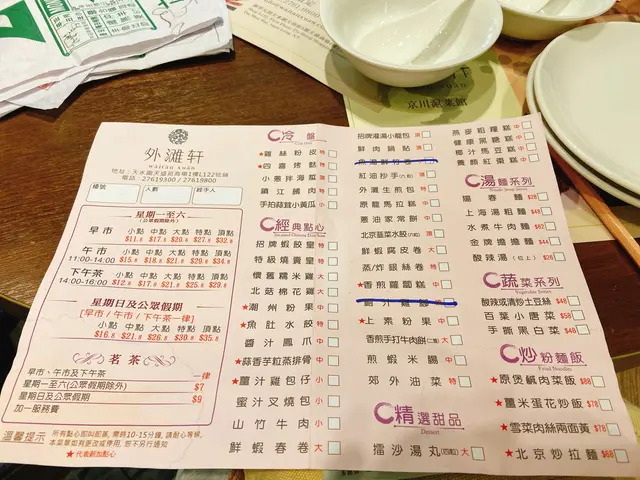 外滩轩
waitan xuan
地址：天水圍天盛苑商場1樓L122號舖
電話：27619300 / 27619800
檯號
人數
經手人
星期一至六
(公眾假期除外)
小點 中點 大點 特點 頂點
早市 $11.8 $17.8 $20.8 $27.8 $32.8
小點 中點 大點 特點 頂點
午市 11:00-14:00 $15.8 $18.8 $21.8 $29.8 $34.8
小點 中點 大點 特點 頂點
下午茶 14:00-16:00 $12.8 $17.8 $21.8 $25.8 $29.8
星期日及公眾假期
[早市 / 午市 / 下午茶一律]
小點 中點 大點 特點 頂點
$16.8 $21.8 $26.8 $30.8 $35.8
茗茶
早市、午市及下午茶 一律
星期一至六(公眾假期除外) $7
星期日及公眾假期 $9
加一服務費
溫馨提示
所有點心即叫即蒸, 需時10-15分鐘, 請耐心等候,
本菜單如有更改或售罄, 恕不另行通知
★代表新加點心
冷盤
★雞絲粉皮 特
★四喜烤麩 特
小蔥拌海蜇 頂
鎮江餚肉 特
手拍蒜茸小黃瓜 小
經典點心
招牌蝦餃皇 特
特級燒賣皇 特
懷舊糯米雞 大
北菇棉花雞 大
★潮州粉果 中
★魚肚水餃 特
醬汁鳳爪 中
★蒜香芋粒蒸排骨 中
★薑汁雞包仔 小
蜜汁叉燒包 小
山竹牛肉 小
鮮蝦春卷 大
招牌灌湯小籠包 頂
鮮肉鍋貼 頂
紅油抄手 頂
外灘生煎包 特
原籠馬拉糕 中
蔥油家常餅 中
北京韮菜水餃 頂
鮮蝦腐皮卷 大
蒸/炸銀絲卷 特
★香煎蘿蔔糕 中
★上素粉果 中
香煎手打牛肉餅 大
煎蝦米腸 中
郊外油菜 特
精選甜品
Dessert
擂沙湯丸 大
燕麥粗糧糕 中
健康黑糖糕 中
椰汁馬豆糕 中
養顏紅棗糕 中
湯麵系列
陽春麵 $28
上海湯粗麵 $48
水煮牛肉麵 $62
金牌擔擔麵 $44
酸辣湯 $26
蔬菜系列
Vegetable Series
酸辣或清炒土豆絲 $48
百葉小唐菜 $58
手撕黑白菜 $48
炒粉麵飯
Fried Noodles
★原煲鹹肉菜飯 $88
★薑米蛋花炒飯 $78
★雪菜肉絲兩面黃 $78
★北京炒拉麵 $68
京川滬菜館